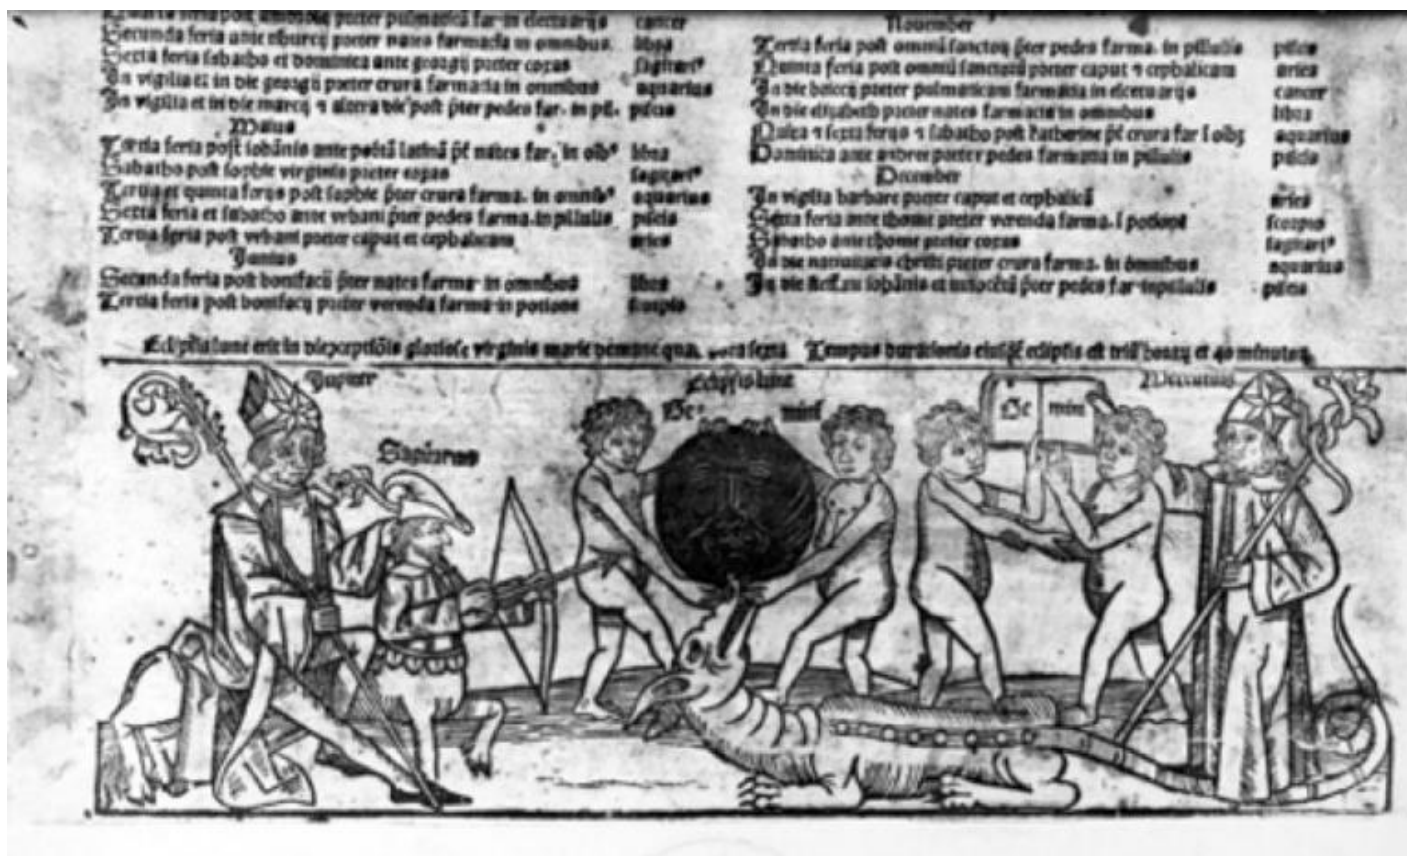 Secunda feria ante tiburcij preter nates farmacia in omnibus. libra
Sexta feria sabatho et dominica ante georgij preter coxas sagitariꝰ
In vigilia et in die georgij preter crura farmacia in omnibus aquarius
In vigilia et in die marcij ⁊ altera die post p̄ter pedes far. in pil. piscis
Maius
Tertia feria post iohānis ante portā latinā p̄t nates far. in oībꝰ libra
Sabatho post sophie virginis preter coxas sagitariꝰ
Tertia et quinta feriis post sophie p̄ter crura farma. in omnibꝰ aquarius
Sexta feria et sabatho ante vrbani p̄ter pedes farma. in pillulis piscis
Tertia feria post vrbani preter caput et cephalicam aries
Junius
Secunda feria post bonifacii p̄ter nates farma. in omnibus libra
Tertia feria post bonifacij preter verenda farma. in potione scorpio
November
Tertia feria post omniū sanctoꝝ p̄ter pedes farma. in pillulis piscis
Quinta feria post omniū sanctorū preter caput ⁊ cephalicam aries
In die preter pulmaticam farmacia in electuarijs cancer
In die elizabeth preter nates farmacia in omnibus libra
feria ⁊ sexta feriis ⁊ sabatho post katherine p̄t crura far ī oībꝫ aquarius
Dominica ante andree preter pedes farmacia in pillulis piscis
December
In vigilia barbare preter caput et cephalicā aries
Sexta feria ante thome preter verenda farma. ī potione scorpio
Sabatho ante thome preter coxas sagitariꝰ
In die natiuitatis christi preter crura farma. in omnibus aquarius
In die steffani iohānis et innocētū p̄ter pedes far. in pillulis piscis
Eclipsis lune erit in die cōceptiōis gloriose virginis marie hora sexta Tempus durationis eiusdē eclipsis est triū horaꝝ et 40 minutoꝝ
Jupiter
Eclipsis lune
Mercurius
Ge mini
Ge mini
Sagitarius